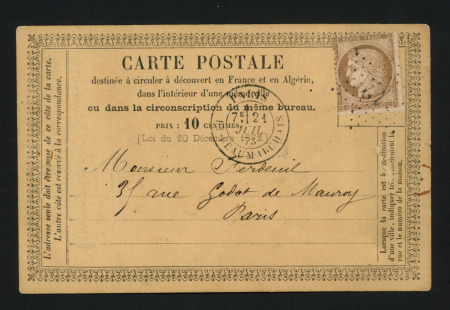 CARTE POSTALE
destinée à circuler à découvert en France et en Algérie,
dans l'intérieur d'une même ville
ou dans la circonscription du même bureau.
PRIX : 10 CENTIMES.
(Loi du 20 Décembre
7E 21
JUIL.
73
BEAUMARCHAIS
Monsieur Perdeuil
35 rue Godot de Mauroy
Paris
L'adresse seule doit être mise de ce côté de la carte.
L'autre côté est réservé à la correspondance.
Lorsque la carte est destination
d'une ville, indiquer la
rue et le numéro de la maison.